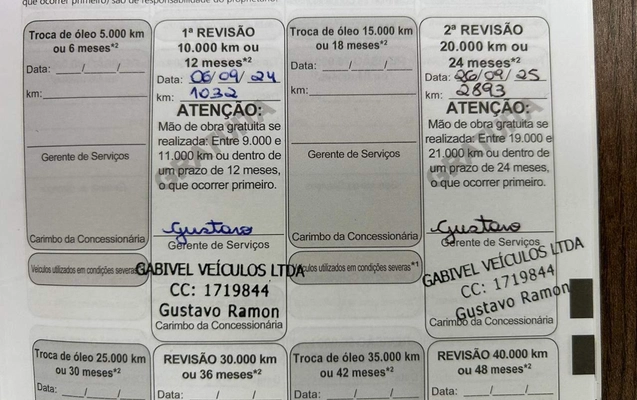 ocorrer primeiro) são de responsabilidade do proprietário.
Troca de óleo 5.000 km
ou 6 meses*²
Data: ___/___/___
km:
Gerente de Serviços
Carimbo da Concessionária
Veículos utilizados em condições severas
1ª REVISÃO
10.000 km ou
12 meses*²
Data: 06/09/24
km: 1032
ATENÇÃO:
Mão de obra gratuita se
realizada: Entre 9.000 e
11.000 km ou dentro de
um prazo de 12 meses,
o que ocorrer primeiro.
GRATUITA
Gustavo
Gerente de Serviços
GABIVEL VEÍCULOS LTDA
CC: 1719844
Gustavo Ramon
Carimbo da Concessionária
Troca de óleo 15.000 km
ou 18 meses*²
Data: ___/___/___
km:
Gerente de Serviços
Carimbo da Concessionária
Veículos utilizados em condições severas*¹
2ª REVISÃO
20.000 km ou
24 meses*²
Data: 26/09/25
km: 2893
ATENÇÃO:
Mão de obra gratuita se
realizada: Entre 19.000 e
21.000 km ou dentro de
um prazo de 24 meses,
o que ocorrer primeiro.
GRATUITA
Gustavo
Gerente de Serviços
GABIVEL VEÍCULOS LTDA
CC: 1719844
Gustavo Ramon
Carimbo da Concessionária
Troca de óleo 25.000 km
ou 30 meses*²
Data: ___/___/___
REVISÃO 30.000 km
ou 36 meses*²
Data: ___/___/___
Troca de óleo 35.000 km
ou 42 meses*²
Data: ___/___/___
REVISÃO 40.000 km
ou 48 meses*²
Data: ___/___/___